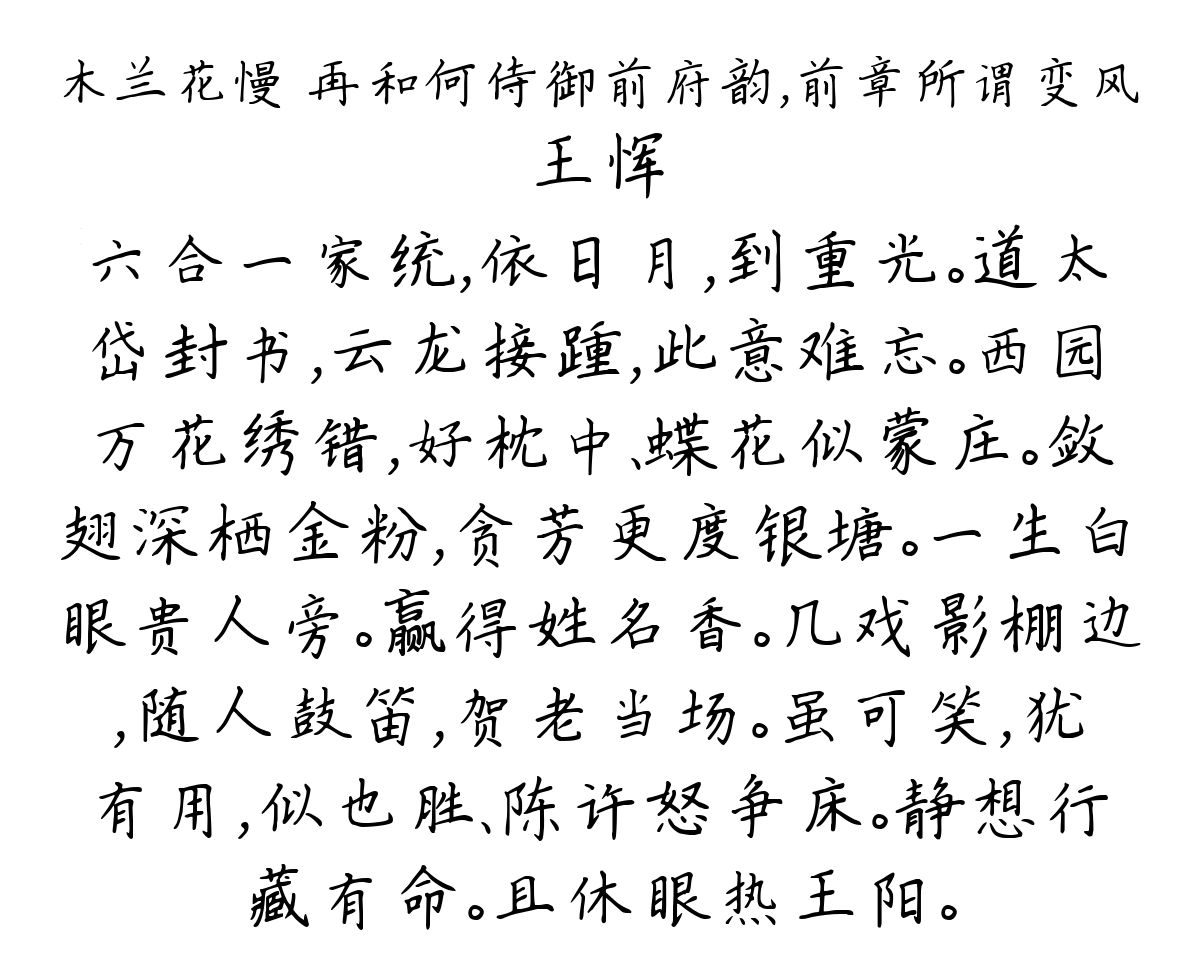 木兰花慢 再和何侍御前府韵,前章所谓变风
王恽
六合一家统,依日月,到重光。道太
岱封书,云龙接踵,此意难忘。西园
万花绣错,好枕中、蝶花似蒙庄。敛
翅深栖金粉,贪芳更度银塘。一生白
眼贵人旁。赢得姓名香。几戏影棚边
,随人鼓笛,贺老当场。虽可笑,犹
有用,似也胜、陈许怒争床。静想行
藏有命。且休眼热王阳。